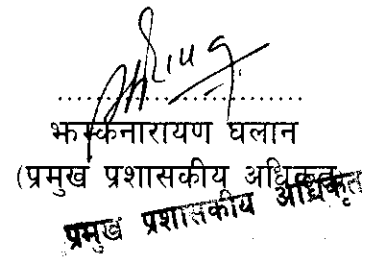 ....................................
झस्केनारायण घलान
(प्रमुख प्रशासकीय अधिकृत
प्रमुख प्रशासकीय अधिकृत